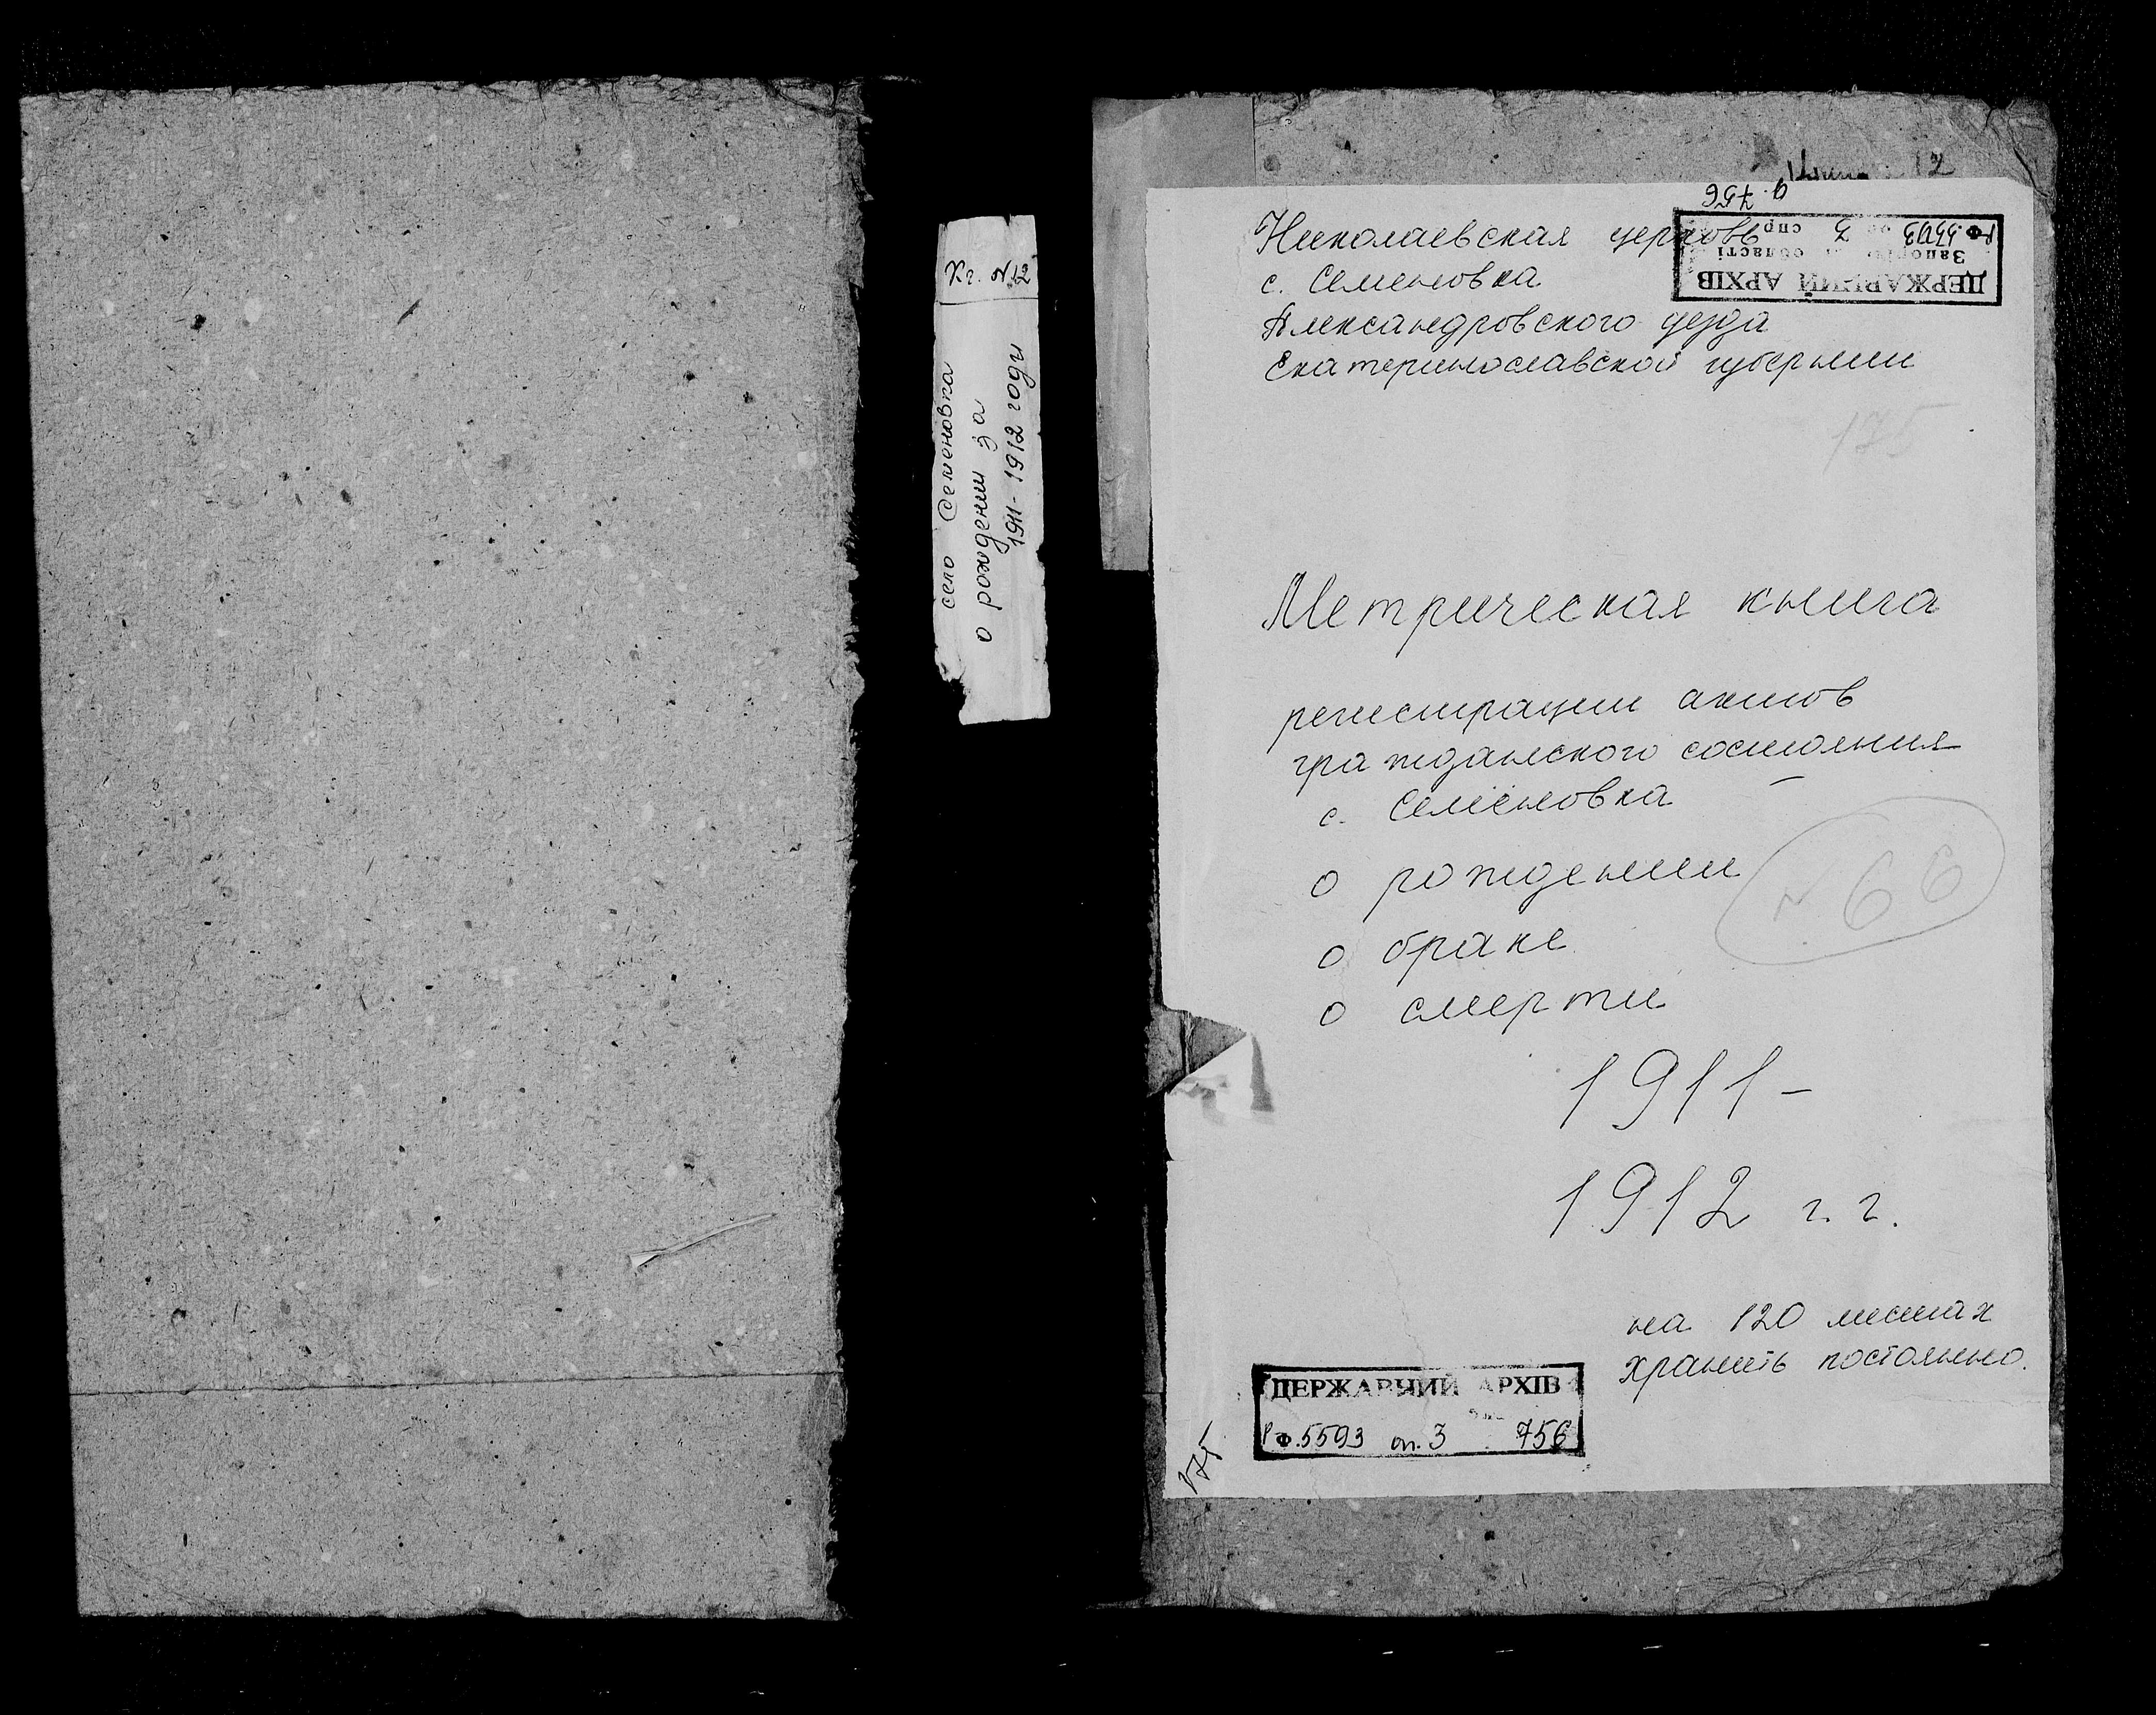 Кг. № 12
село Семеновка
о рождении за
1911-1912 годы
12
д. 756
ДЕРЖАВНИЙ АРХІВ
Запорізької області
Р Ф. 5593 оп. 3 спр.
Николаевская церковь
с. Семеновка
Александровского уезда
Екатеринославской губернии
175
Метрическая книга
регистрации актов
гражданского состояния
с. Семёновка
о рождении
№ 66
о браке
о смерти
1911-
1912 г.г.
на 120 листах
хранить постоянно.
ДЕРЖАВНИЙ АРХІВ
Р Ф. 5593 оп. 3 756
175